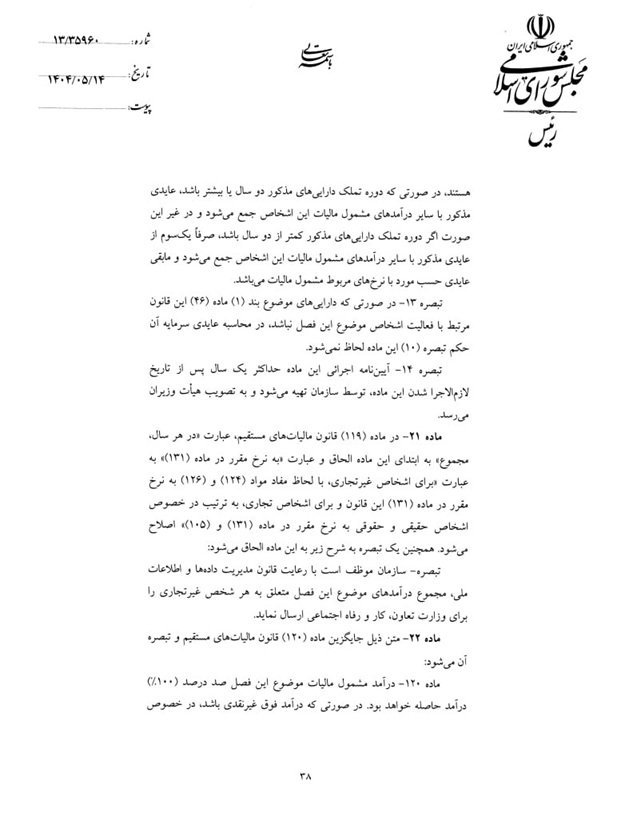 جمهوری اسلامی ایران
مجلس شورای اسلامی
رئیس
باسمه تعالی
شماره: ۱۳/۳۵۹۶۰
تاریخ: ۱۴۰۴/۰۵/۱۴
پیوست:
هستند، در صورتی که دوره تملک دارایی‌های مذکور دو سال یا بیشتر باشد، عایدی
مذکور با سایر درآمدهای مشمول مالیات این اشخاص جمع می‌شود و در غیر این
صورت اگر دوره تملک دارایی‌های مذکور کمتر از دو سال باشد، صرفاً یک‌سوم از
عایدی مذکور با سایر درآمدهای مشمول مالیات این اشخاص جمع می‌شود و مابقی
عایدی حسب مورد با نرخ‌های مربوط مشمول مالیات می‌باشد.
تبصره ۱۳- در صورتی که دارایی‌های موضوع بند (۱) ماده (۴۶) این قانون
مرتبط با فعالیت اشخاص موضوع این فصل نباشد، در محاسبه عایدی سرمایه آن
حکم تبصره (۱۰) این ماده لحاظ نمی‌شود.
تبصره ۱۴- آیین‌نامه اجرائی این ماده حداکثر یک سال پس از تاریخ
لازم‌الاجرا شدن این ماده، توسط سازمان تهیه می‌شود و به تصویب هیأت وزیران
می‌رسد.
ماده ۲۱- در ماده (۱۱۹) قانون مالیات‌های مستقیم، عبارت «در هر سال،
مجموع» به ابتدای این ماده الحاق و عبارت «به نرخ مقرر در ماده (۱۳۱)» به
عبارت «برای اشخاص غیرتجاری، با لحاظ مفاد مواد (۱۲۴) و (۱۲۶) به نرخ
مقرر در ماده (۱۳۱) این قانون و برای اشخاص تجاری، به ترتیب در خصوص
اشخاص حقیقی و حقوقی به نرخ مقرر در ماده (۱۳۱) و (۱۰۵)» اصلاح
می‌شود. همچنین یک تبصره به شرح زیر به این ماده الحاق می‌شود:
تبصره- سازمان موظف است با رعایت قانون مدیریت داده‌ها و اطلاعات
ملی، مجموع درآمدهای موضوع این فصل متعلق به هر شخص غیرتجاری را
برای وزارت تعاون، کار و رفاه اجتماعی ارسال نماید.
ماده ۲۲- متن ذیل جایگزین ماده (۱۲۰) قانون مالیات‌های مستقیم و تبصره
آن می‌شود:
ماده ۱۲۰- درآمد مشمول مالیات موضوع این فصل صد درصد (۱۰۰٪)
درآمد حاصله خواهد بود. در صورتی که درآمد فوق غیرنقدی باشد، در خصوص
۳۸